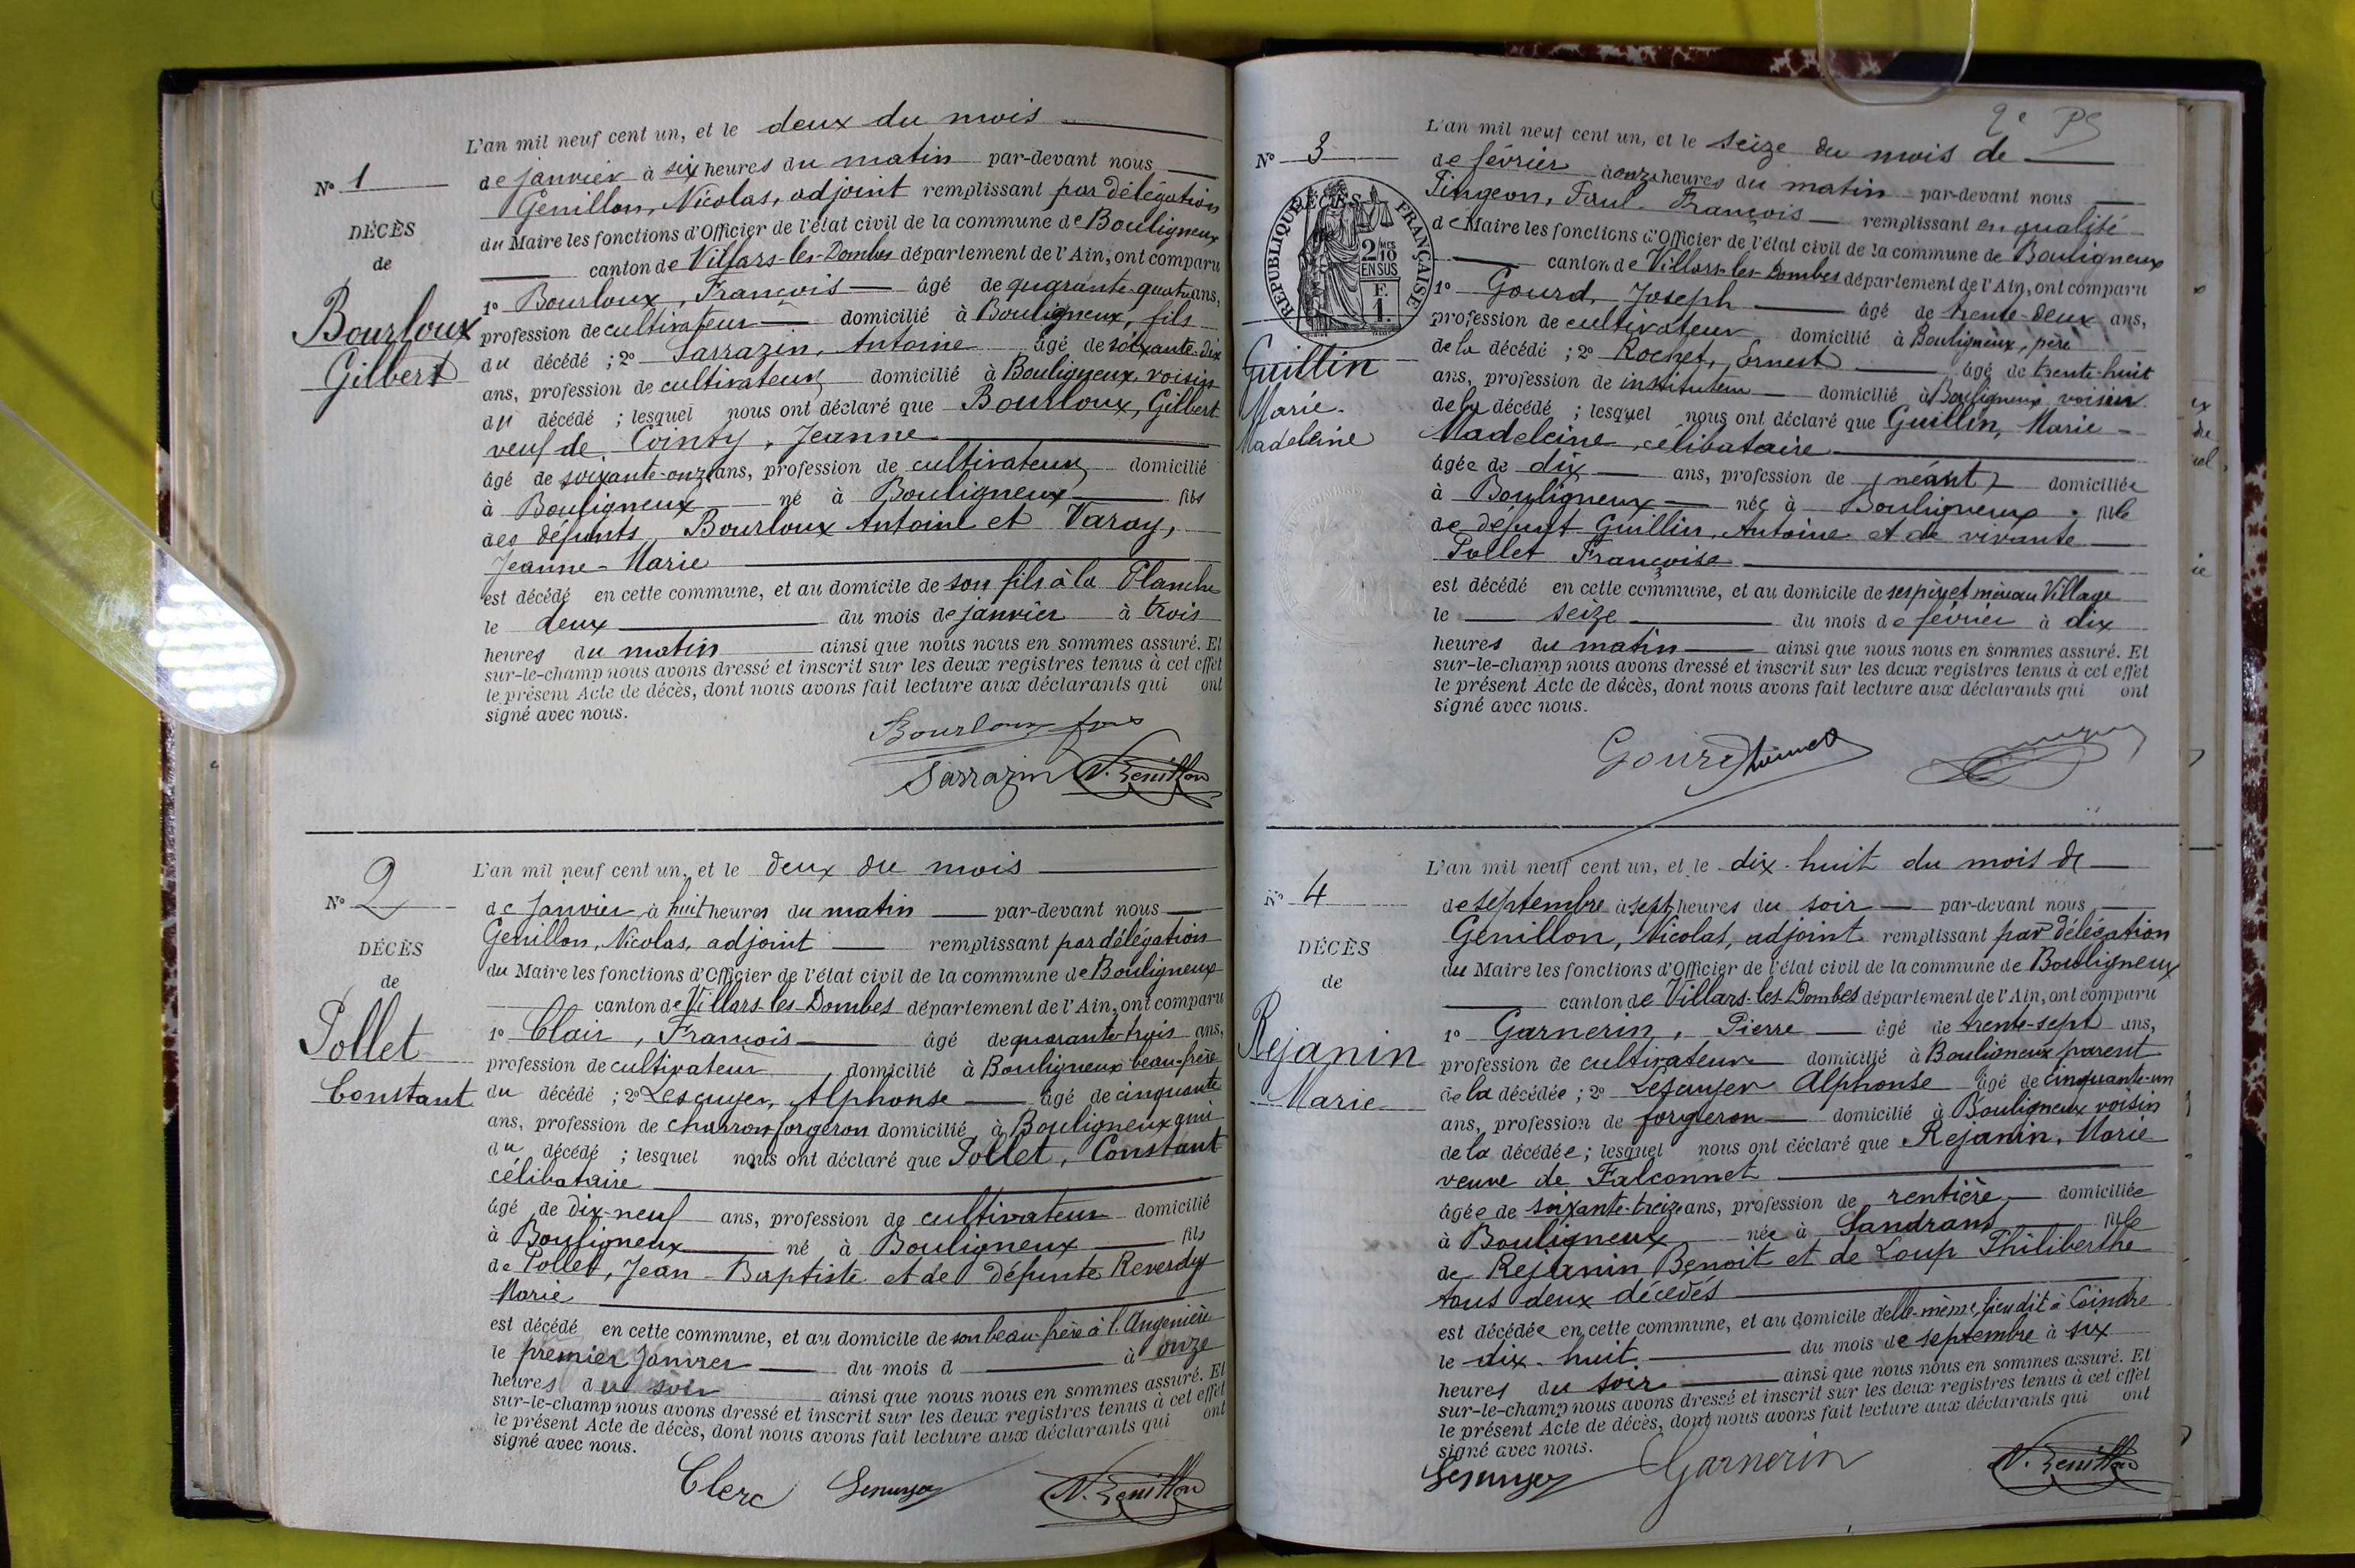 L'an mil neuf cent un, et le deux du mois
N° 1
de janvier à six heures du matin par-devant nous
Genillon, Nicolas, adjoint remplissant par délégation
DÉCÈS
du Maire les fonctions d'Officier de l'état civil de la commune de Bouligneux
de
canton de Villars-les-Dombes département de l'Ain, ont comparu
1° Bourloux, François âgé de quarante-quatre ans,
Bourloux
profession de cultivateur domicilié à Bouligneux, fils
Gilbert
du décédé ; 2° Sarrazin, Antoine âgé de soixante-dix
ans, profession de cultivateur domicilié à Bouligneux, voisin
du décédé ; lesquel nous ont déclaré que Bourloux, Gilbert
veuf de Cointy, Jeanne
âgé de soixante-onze ans, profession de cultivateur domicilié
à Bouligneux né à Bouligneux fils
des défunts Bourloux Antoine et Varay,
Jeanne-Marie
est décédé en cette commune, et au domicile de son fils à la Planche
le deux du mois de janvier à trois
heures du matin ainsi que nous nous en sommes assuré. Et
sur-le-champ nous avons dressé et inscrit sur les deux registres tenus à cet effet
le présent Acte de décès, dont nous avons fait lecture aux déclarants qui ont
signé avec nous.
Bourloux fçois
Sarrazin N. Genillon
L'an mil neuf cent un, et le deux du mois
N° 2
de janvier à huit heures du matin par-devant nous
Genillon, Nicolas, adjoint remplissant par délégation
DÉCÈS
du Maire les fonctions d'Officier de l'état civil de la commune de Bouligneux
de
canton de Villars-les-Dombes département de l'Ain, ont comparu
Pollet
1° Clair, François âgé de quarante-trois ans,
profession de cultivateur domicilié à Bouligneux beau-frère
Constant
du décédé ; 2° Lescuyer, Alphonse âgé de cinquante
ans, profession de charron forgeron domicilié à Bouligneux ami
du décédé ; lesquel nous ont déclaré que Pollet, Constant
célibataire
âgé de dix-neuf ans, profession de cultivateur domicilié
à Bouligneux né à Bouligneux fils
de Pollet, Jean-Baptiste et de défunte Reverdy
Marie
est décédé en cette commune, et au domicile de son beau-frère à l'Angenière
le premier janvier du mois d à onze
heures du soir ainsi que nous nous en sommes assuré. Et
sur-le-champ nous avons dressé et inscrit sur les deux registres tenus à cet effet
le présent Acte de décès, dont nous avons fait lecture aux déclarants qui ont
signé avec nous.
Clerc Lescuyer N. Genillon
2e
L'an mil neuf cent un, et le seize du mois de
N° 3
de février à onze heures du matin par-devant nous
Pingeon, Paul-François remplissant en qualité
DÉCÈS
RÉPUBLIQUE FRANÇAISE
2 MES 10 EN SUS
F. 1.
de Maire les fonctions d'Officier de l'état civil de la commune de Bouligneux
canton de Villars-les-Dombes département de l'Ain, ont comparu
1° Gourd, Joseph âgé de trente-deux ans,
profession de cultivateur domicilié à Bouligneux, père
Guillin
de la décédé ; 2° Rochet, Ernest âgé de trente-huit
ans, profession de instituteur domicilié à Bouligneux voisin
Marie-
de la décédé ; lesquel nous ont déclaré que Guillin, Marie-
Madeleine
Madeleine, célibataire
âgée de dix ans, profession de (néant) domiciliée
à Bouligneux née à Bouligneux fille
de défunt Guillin, Antoine et de vivante
Pollet Françoise
est décédé en cette commune, et au domicile de ses père et mère au Village
le seize du mois de février à dix
heures du matin ainsi que nous nous en sommes assuré. Et
sur-le-champ nous avons dressé et inscrit sur les deux registres tenus à cet effet
le présent Acte de décès, dont nous avons fait lecture aux déclarants qui ont
signé avec nous.
Gourd
L'an mil neuf cent un, et le dix-huit du mois de
N° 4
de septembre à sept heures du soir par-devant nous
Genillon, Nicolas, adjoint remplissant par délégation
DÉCÈS
du Maire les fonctions d'Officier de l'état civil de la commune de Bouligneux
de
canton de Villars-les-Dombes département de l'Ain, ont comparu
1° Garnerin, Pierre âgé de trente-sept ans,
Rejanin
profession de cultivateur domicilié à Bouligneux parent
Marie
de la décédée ; 2° Lescuyer Alphonse âgé de cinquante-un
ans, profession de forgeron domicilié à Bouligneux voisin
de la décédée ; lesquel nous ont déclaré que Rejanin, Marie
veuve de Falconnet
âgée de soixante-treize ans, profession de rentière domiciliée
à Bouligneux née à Sandrans fille
de Rejanin Benoit et de Loup Philiberthe
tous deux décédés
est décédée en cette commune, et au domicile d'elle-même, lieu dit à Coindre
le dix-huit du mois de septembre à six
heures du soir ainsi que nous nous en sommes assuré. Et
sur-le-champ nous avons dressé et inscrit sur les deux registres tenus à cet effet
le présent Acte de décès, dont nous avons fait lecture aux déclarants qui ont
signé avec nous.
Lescuyer Garnerin N. Genillon